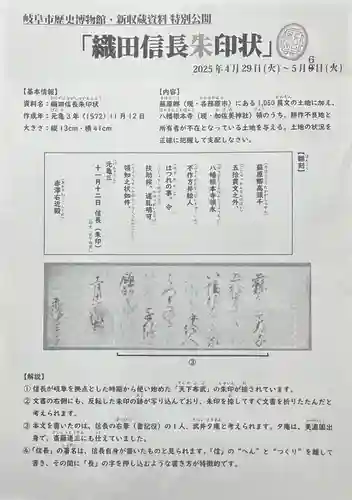 岐阜市歴史博物館・新収蔵資料 特別公開
「織田信長朱印状」
2025年4月29日(火)～5月6日(火)
【基本情報】
資料名：織田信長朱印状
作成年：元亀3年(1572)11月12日
大きさ：縦13cm・横41cm
【内容】
蘇原郷(現・各務原市)にある1,050貫文の土地に加え、
八幡根本寺(現・加佐美神社)領のうち、耕作不良地と
所有者が不在となっている土地を与える。土地の状況を
正確に把握して支配しなさい。
【翻刻】
蘇原郷高頭千
五拾貫文之外、
八幡根本寺領永
不作方并給人
はつれの事、令
扶助訖、速乱明可
領知之状如件、
元亀三
十一月十二日 信長(朱印)
赤座右近殿
③
【解説】
①信長が岐阜を拠点とした時期から使い始めた「天下布武」の朱印が捺されています。
②文書の右側にも、反転した朱印の跡が写り込んでおり、朱印を捺してすぐ文書を折りたたんだと
考えられます。
③本文を書いたのは、信長の右筆(書記役)の1人、武井夕庵と考えられます。夕庵は、美濃国出
身で、斎藤道三にも仕えていました。
④「信長」の署名は、信長自身が書いたものと見られます。「信」の“へん”と“つくり”を離して
書き、その間に「長」の字を押し込むような書き方が特徴的です。